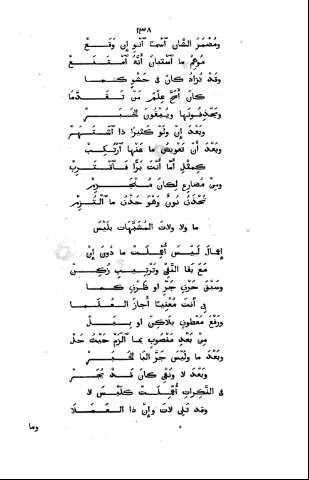 ١٣٨
ومضمر الشان اسما انو ان وقع
موهم ما استبان انه امتنع
وقد تزاد كان فى حشو كما
كان اصح علم من تقدما
ويحذفونها ويبقون الخبر
وبعد ان ولو كثيرا ذا اشتهر
وبعد ان تعويض ما عنها ارتكب
كمثل اما انت برا فاقترب
ومن مضارع لكان منجزم
تحذف نون وهو حذف ما التزم
ما ولا ولات المشبهات بليس
اعمال ليس أعملت ما دون ان
مع بقا النفى وترتيب زكن
وسبق حرف جر او ظرف كما
بى انت معنيا اجاز العلما
ورفع معطوف بلاكن او ببل
من بعد منصوب بما الزم حيث حل
وبعد ما وليس جر البا الخبر
وبعد لا ونفى كان قد يجر
فى النكرات أعملت كليس لا
وقد تلى لات وان ذا العملا
وما